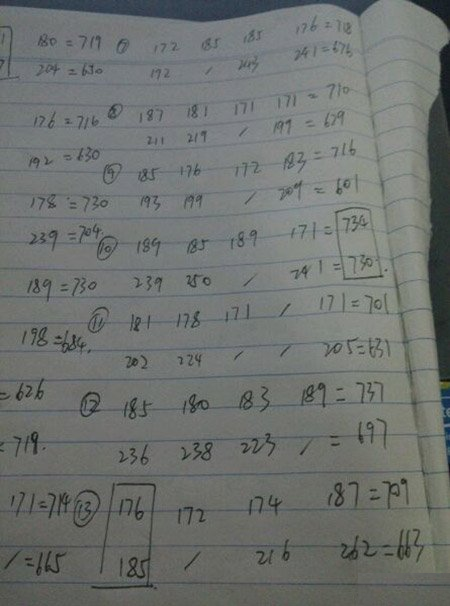 180=719 ⑦ 172 185 185 176=718
204=650 192 / 243 241=676
176=716 ⑧ 187 181 171 171=710
211 219 / 199=629
192=630
⑨ 185 176 172 183=716
178=730 193 199 / 209=601
239=704 ⑩ 189 185 189 171=734
189=730 239 250 / 241=730.
⑪ 181 178 171 / 171=701
198=684. 202 224 / / 205=631
=626 ⑫ 185 180 183 189=737
=718. 236 238 223 / =697
171=714 ⑬ 176 172 174 187=709
/=665 185 / 216 262=663